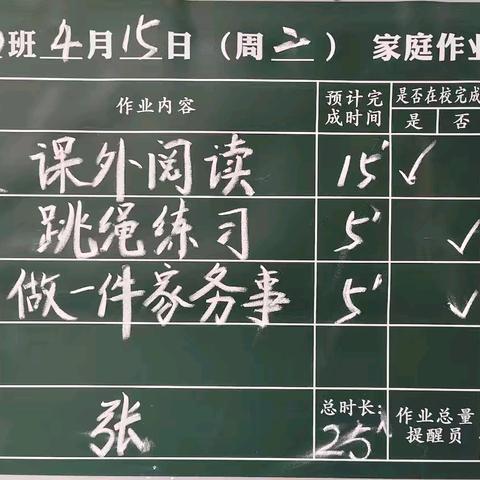 班 4月15日（周二） 家庭作业
作业内容 预计完成时间 是否在校完成
是 否
课外阅读 15' ✓
跳绳练习 5' ✓
做一件家务事 5' ✓
张 总时长：25' 作业总量提醒员